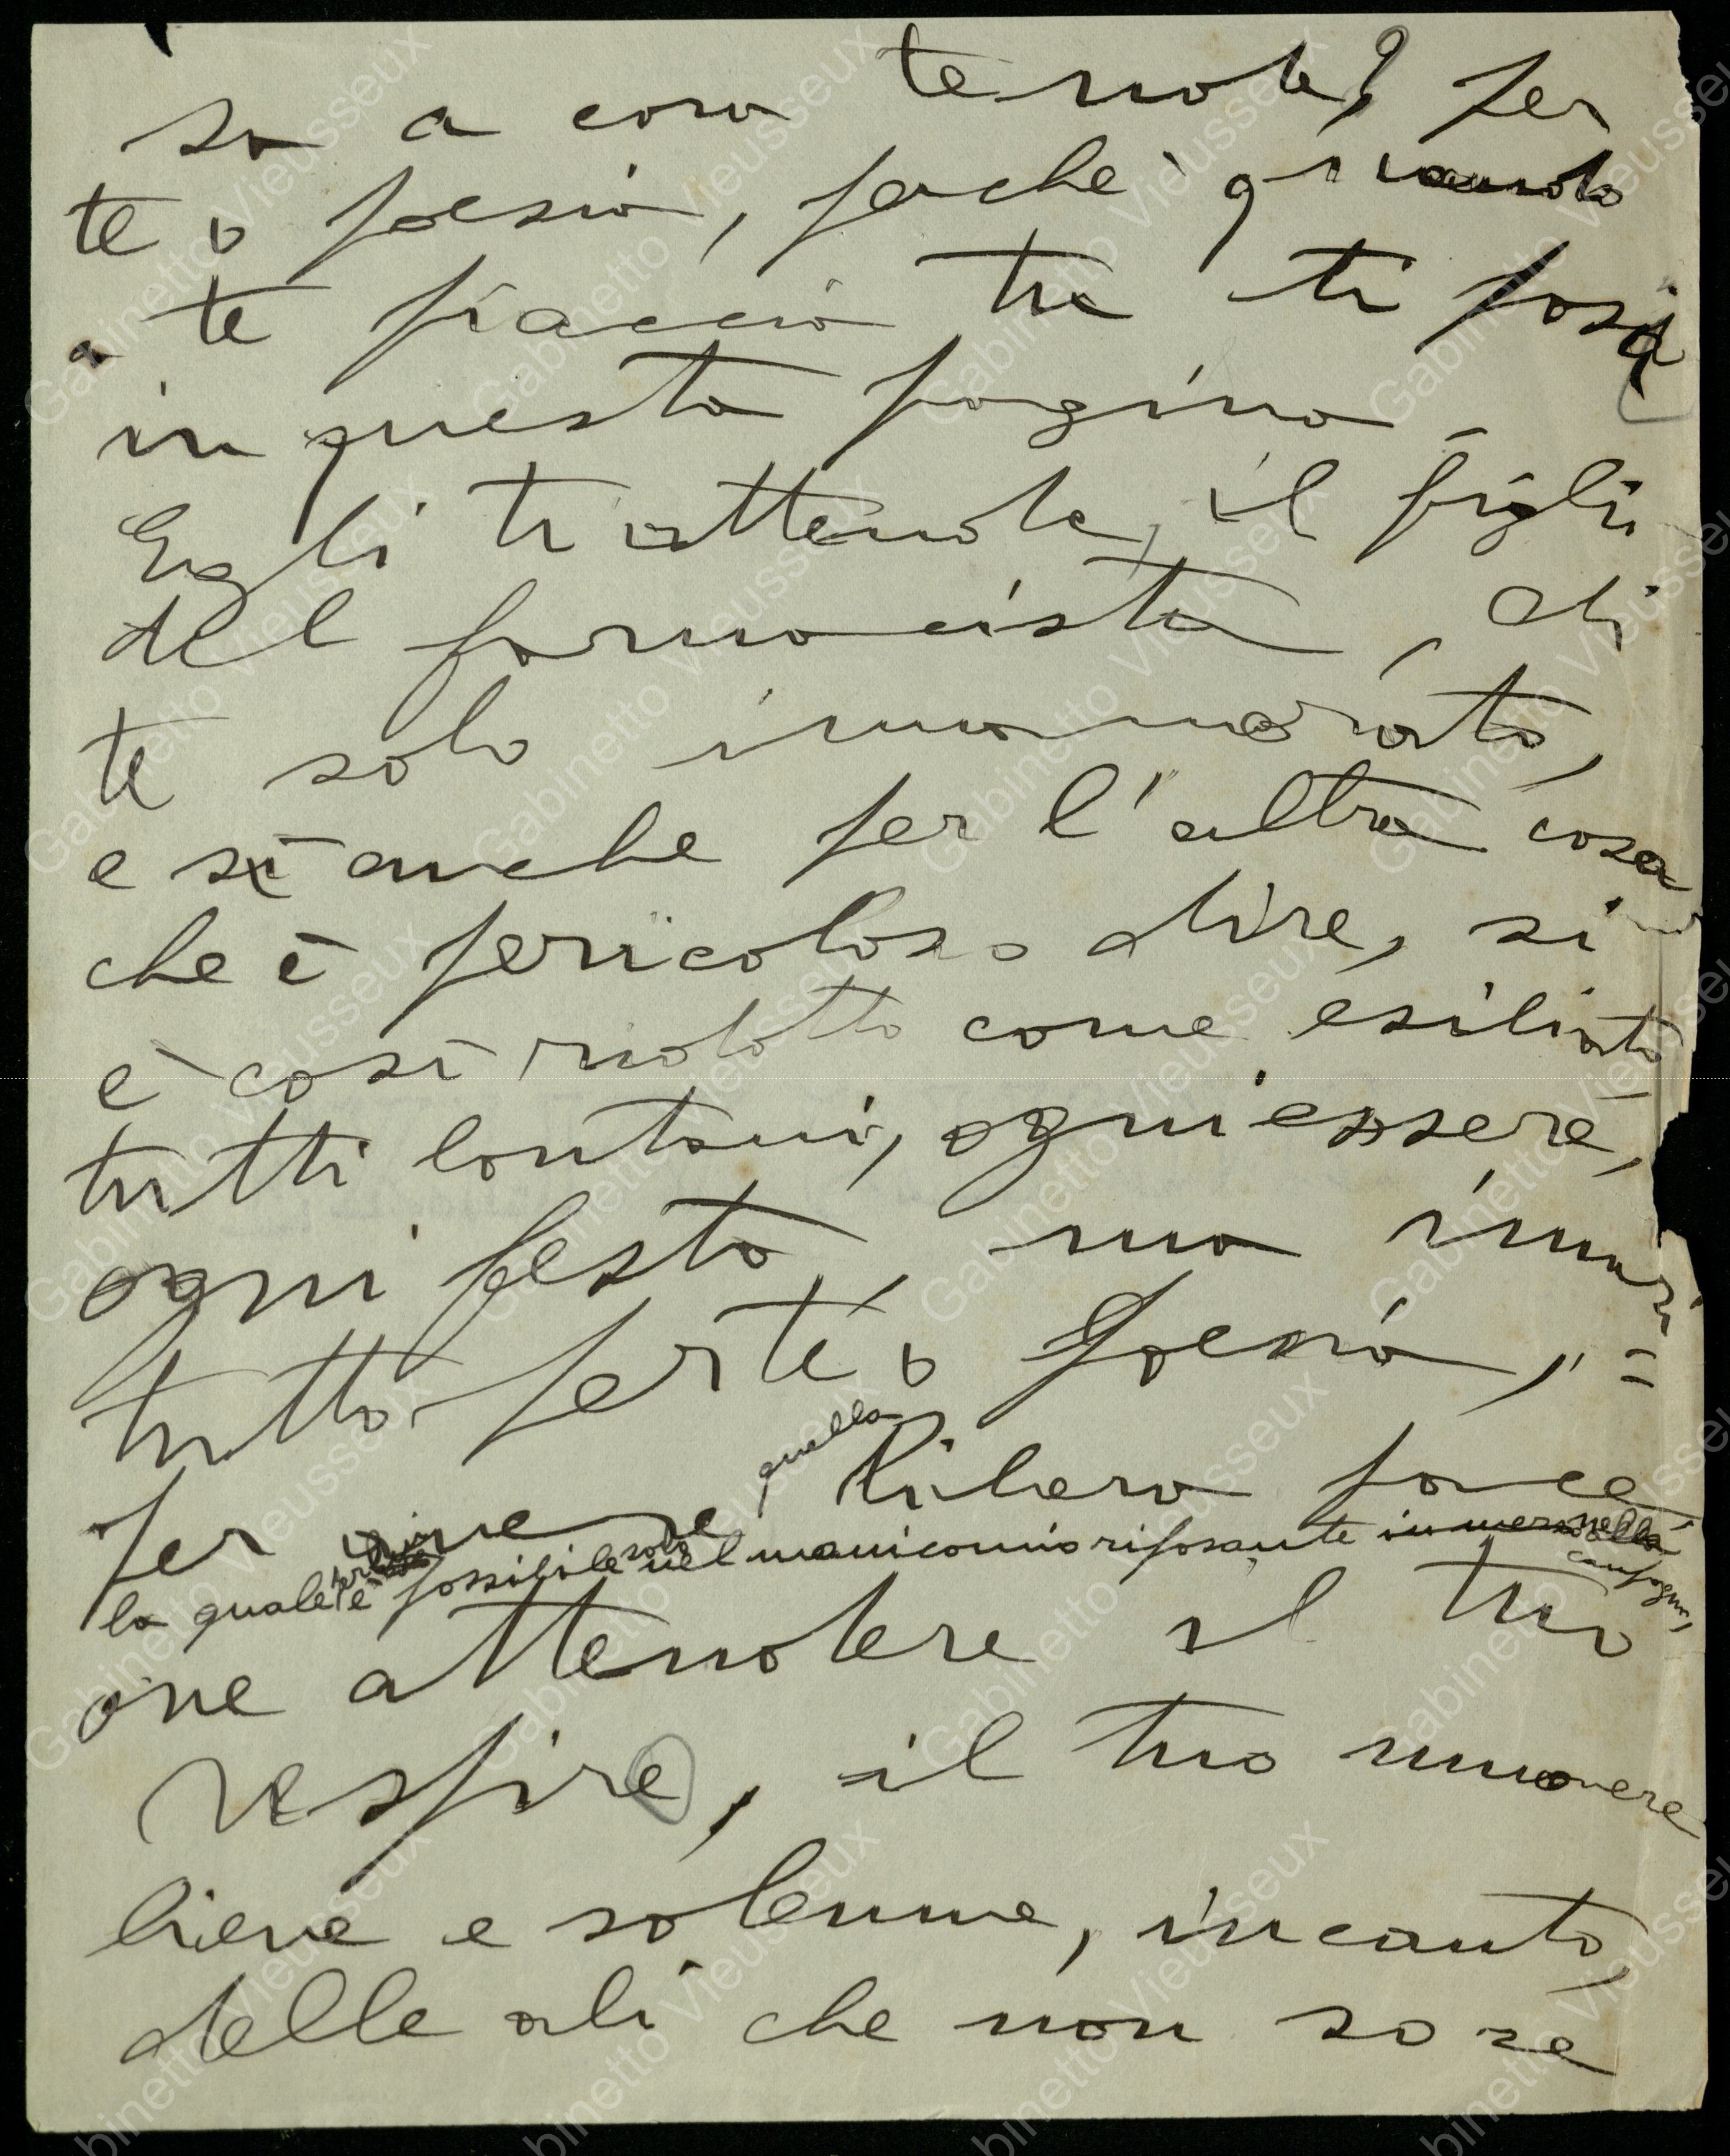 sa a cosa tende? per
te o poesia, perché quando
a te piaccia tu ti posi
in questa pagina.
Egli ti attende, il figlio
del farmacista, di
te solo innamorato,
e sì anche per l'altra cosa
che è pericoloso dire, si
è così ridotto come esiliato
tutti lontani, ogni essere,
ogni festa, ma innan=
tutto per te o Poesia,
per vivere quella libera pace
la quale è possibile solo nel manicomio riposante in mezzo alla campagna,
ove attendere il tuo
respiro, il tuo muovere
lieve e solenne, incanto,
delle ali che non so se
Gabinetto Vieusseux